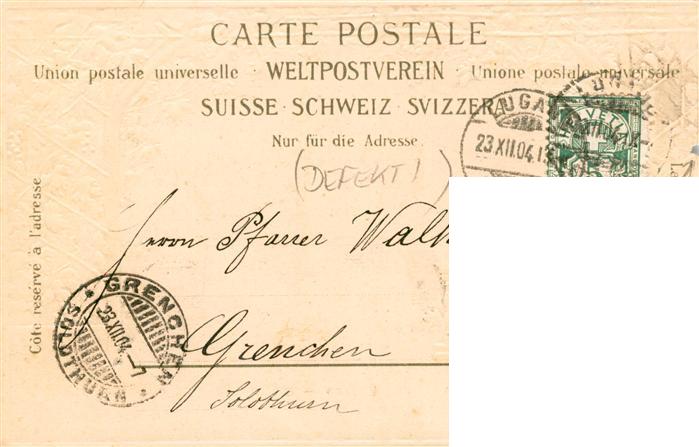 CARTE POSTALE
Union postale universelle · WELTPOSTVEREIN · Unione postale universale
SUISSE · SCHWEIZ · SVIZZERA
Nur für die Adresse.
(DEFEKT!)
LUGA
23.XII.04.
HELVETIA
Côté réservé à l'adresse
Herrn Pfarrer Walt
Grenchen
Solothurn
GRENCHEN
23.XII.04.–7
(SOLOTHURN)